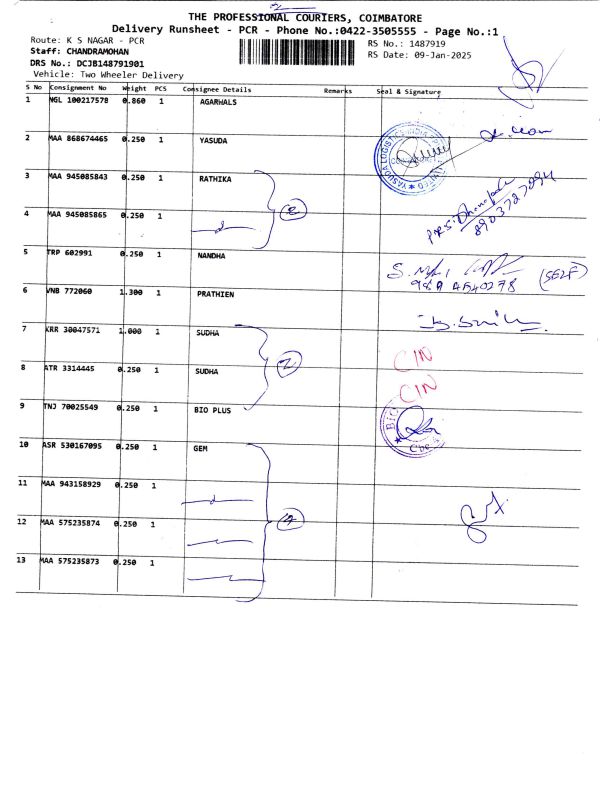 THE PROFESSIONAL COURIERS, COIMBATORE
Delivery Runsheet - PCR - Phone No.:0422-3505555 - Page No.:1
Route: K S NAGAR - PCR
RS No.: 1487919
Staff: CHANDRAMOHAN
RS Date: 09-Jan-2025
DRS No.: DCJB148791901
Vehicle: Two Wheeler Delivery
S No Consignment No Weight PCS Consignee Details Remarks Seal & Signature
1 NGL 100217578 0.860 1 AGARWALS
2 MAA 868674465 0.250 1 YASUDA
YASUDA LOGISTICS INDIA LIMITED
3 MAA 945085843 0.250 1 RATHIKA
8903727894
4 MAA 945085865 0.250 1
5 TRP 602991 0.250 1 NANDHA
(SELF)
6 VNB 772060 1.300 1 PRATHIEN
7 KRR 30047571 1.000 1 SUDHA
CIN
8 ATR 3314445 0.250 1 SUDHA
2
CIN
9 TNJ 70025549 0.250 1 BIO PLUS
10 ASR 530167095 0.250 1 GEM
11 MAA 943158929 0.250 1
12 MAA 575235874 0.250 1
4
13 MAA 575235873 0.250 1